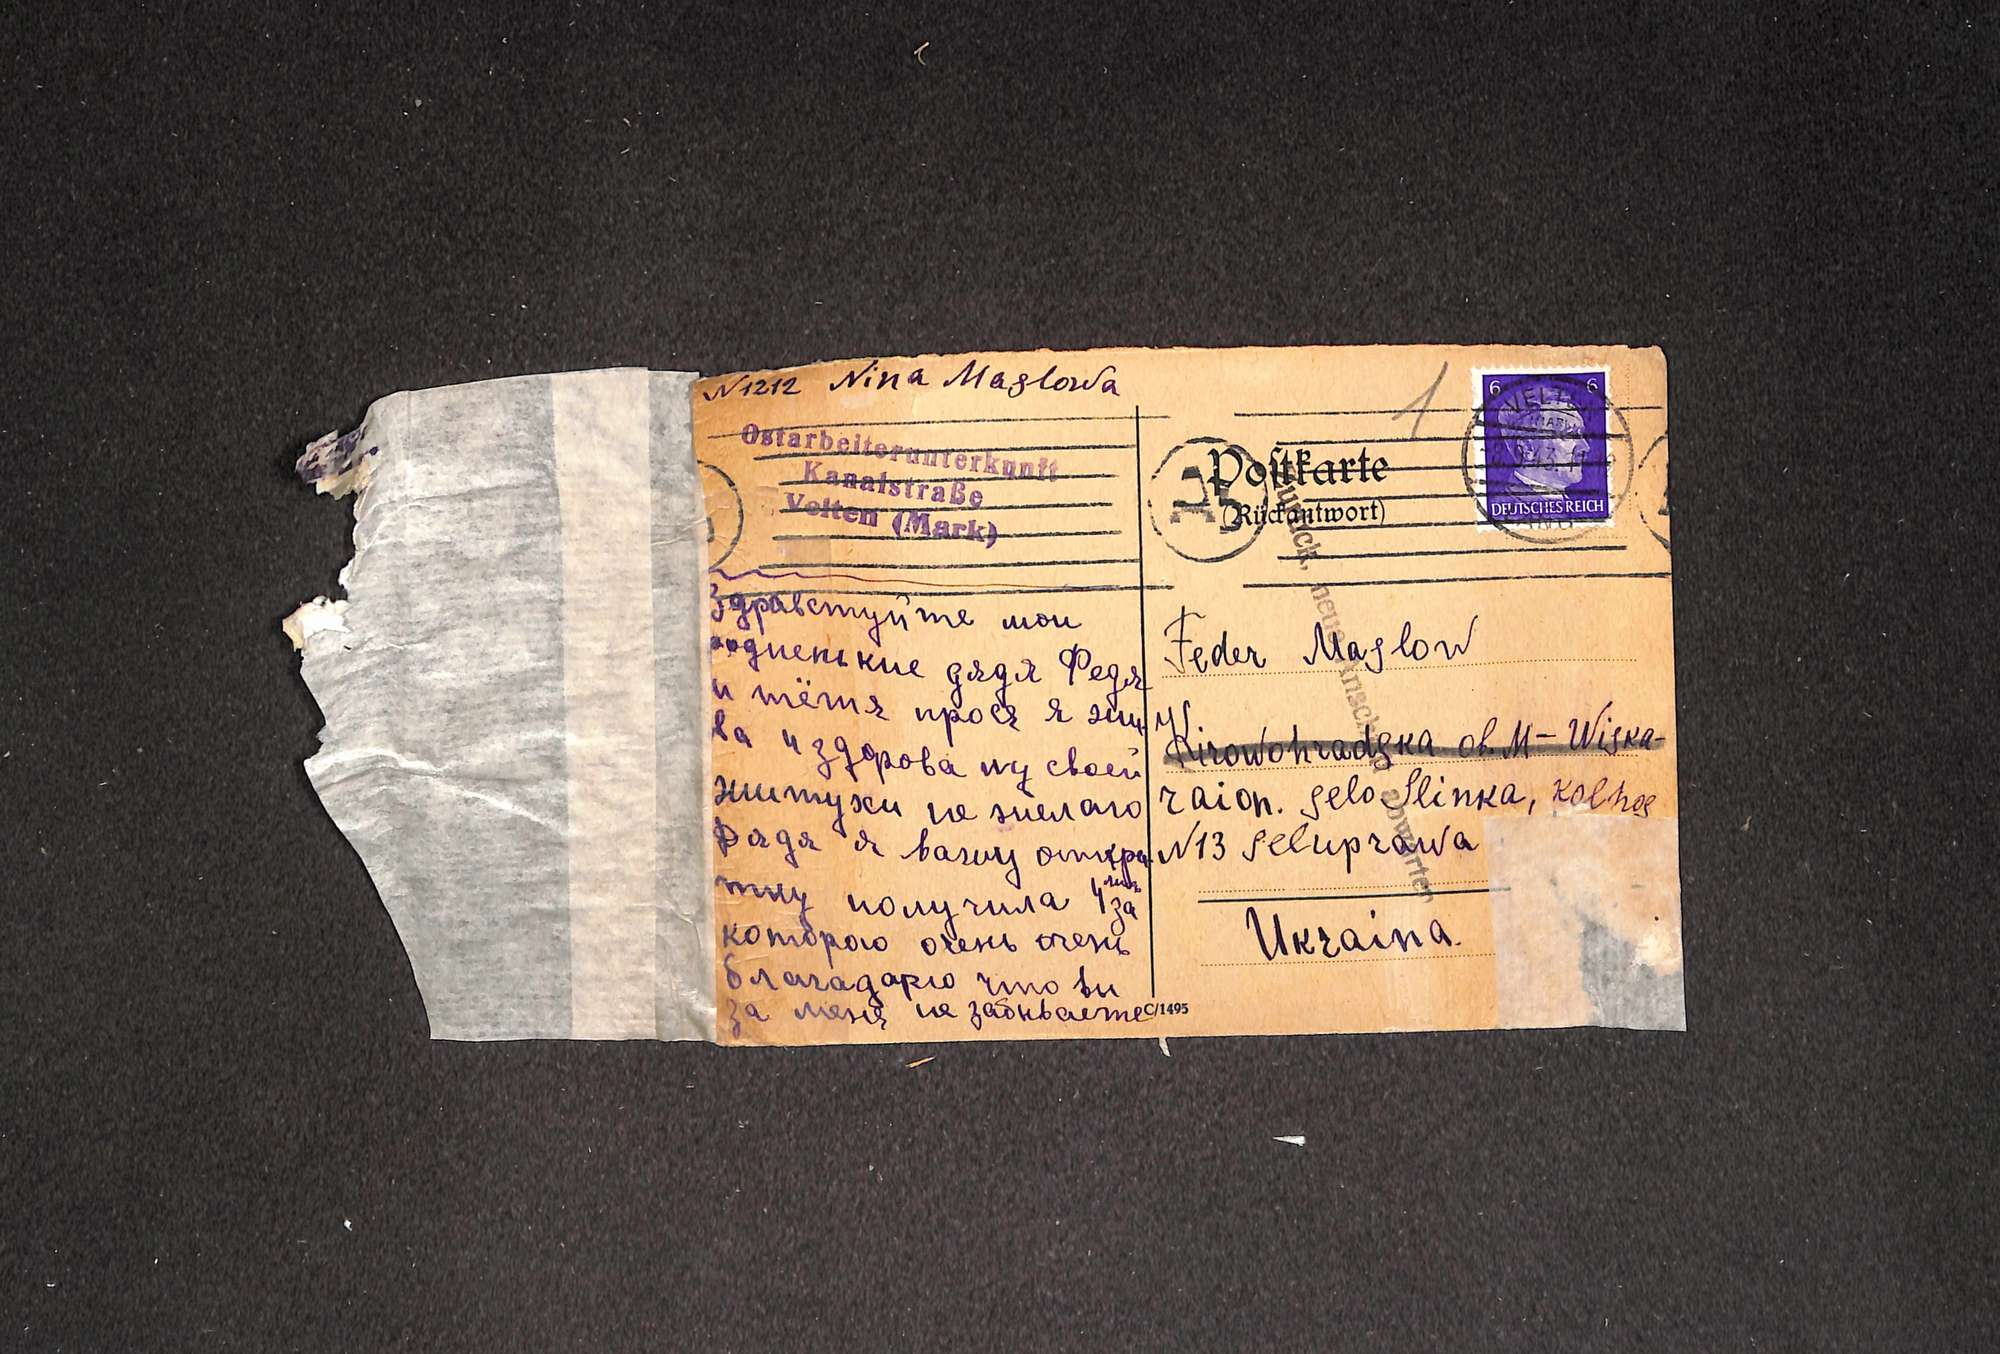 N 1212 Nina Maslowa
Ostarbeiterunterkunft
Kanalstraße
Velten (Mark)
Здравствуйте мои
родненькие дядя Федя
и тётя прося я жи
ва и здорова ну своей
житухи не желаю
дядя я вашу откры
тку получила 4 за
которою очень очень
благадарю что ви
за меня не забываете
Postkarte
(Rückantwort)
6 6
DEUTSCHES REICH
VELTEN
Zurück, neue Anschrift abwarten
Feder Maslow
Kirowohradska ob. M-Wiska-
raion. selo Slinka, Kolhos
N13 seluprawa
Ukraina.
C/1495